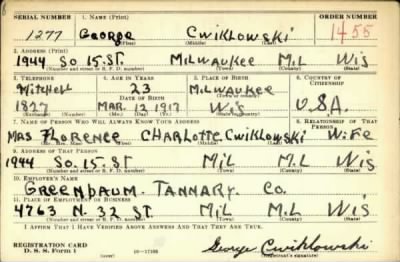 SERIAL NUMBER 1. NAME (Print) ORDER NUMBER
1277 George Cwiklowski 1455
(First) (Middle) (Last)
2. ADDRESS (Print)
1944 So. 15. ST. Milwaukee MIL WIS
(Number and street or R. F. D. number) (Town) (County) (State)
3. TELEPHONE 4. AGE IN YEARS 5. PLACE OF BIRTH 6. COUNTRY OF CITIZENSHIP
Mitchell 23 Milwaukee
DATE OF BIRTH
1827 Mar. 12 1917 Wis U.S.A.
(Exchange) (No.) (Mo.) (Day) (Yr.) (State or country)
7. NAME OF PERSON WHO WILL ALWAYS KNOW YOUR ADDRESS 8. RELATIONSHIP OF THAT PERSON
Mrs Florence Charlotte Cwiklowski Wife
(Mr., Mrs., Miss) (First) (Middle) (Last)
9. ADDRESS OF THAT PERSON
1944 So. 15. ST MIL MIL WIS
(Number and street or R. F. D. number) (Town) (County) (State)
10. EMPLOYER'S NAME
Greenbaum. Tannary. Co.
11. PLACE OF EMPLOYMENT OR BUSINESS
4763 N. 32 ST. MIL MIL WIS
(Number and street or R. F. D. number) (Town) (County) (State)
I AFFIRM THAT I HAVE VERIFIED ABOVE ANSWERS AND THAT THEY ARE TRUE.
REGISTRATION CARD
D. S. S. Form 1 George Cwiklowski
(Registrant's signature)